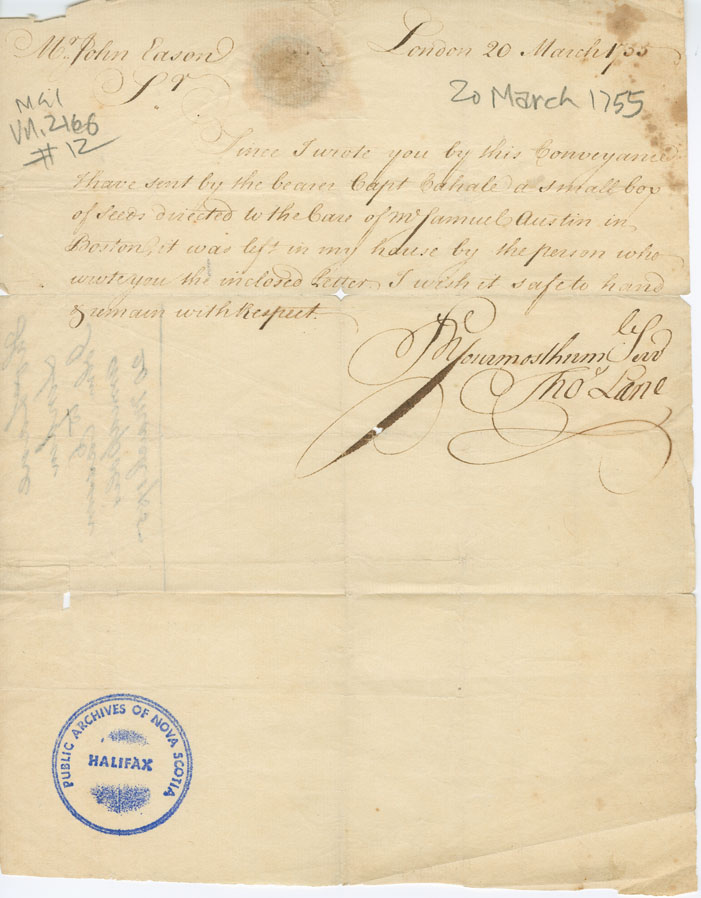 Mr. John Eason
London 20 March 1755
Sr.
20 March 1755
MG1
Vol. 2166
#12
Since I wrote you by this Conveyance
I have sent by the bearer Capt Cahale a small box
of Seeds directed to the Care of Mr Samuel Austin in
Boston, it was left in my house by the person who
wrote you the inclosed Letter, I wish it safe to hand
& remain with Respect.
Sr
Your most humble Serv
Thos Lane
PUBLIC ARCHIVES OF NOVA SCOTIA
HALIFAX